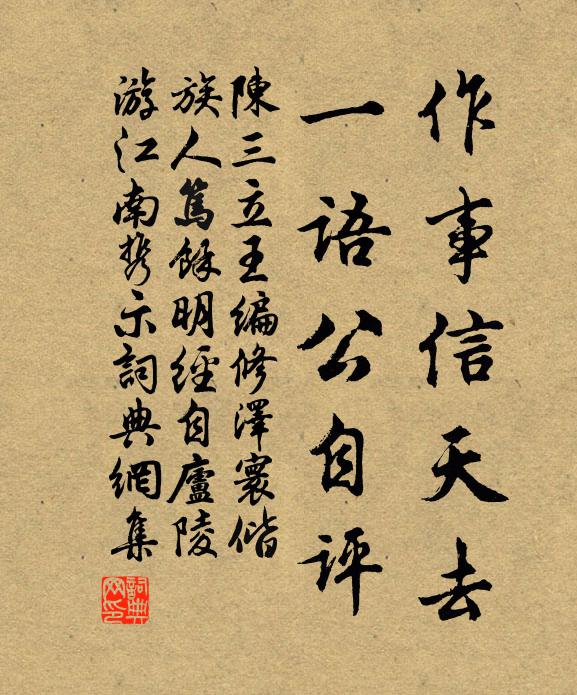 作事信天去
一語公自評
陳三立王編修澤寰偕
族人篤餘明經自廬陵
游江南携示詞典網集
詞典网印